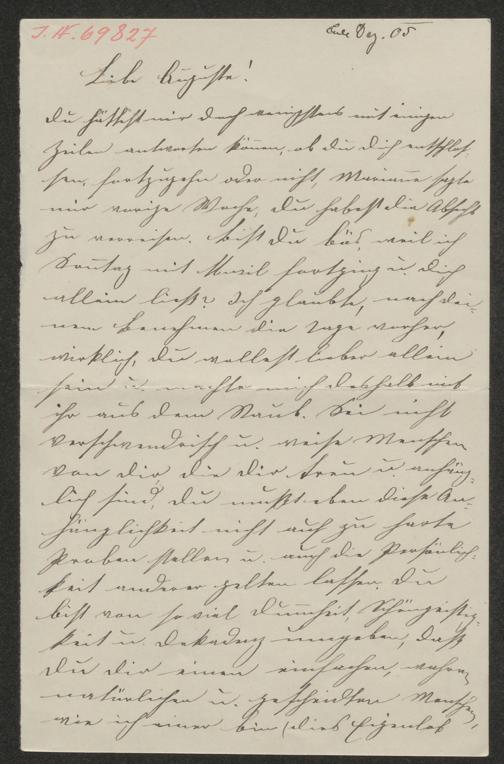 J.N. 69827
Ende Dez. 05
Liebe Auguste!
Du hättest mir doch wenigstens mit einigen
Zeilen antworten können, ob du dich entschlos-
sen, fortzugehn oder nicht, Marianne sagte
mir vorige Woche, du habest die Absicht
zu verreisen. Bist du bös, weil ich
Sonntag mit fortging u. dich
allein ließ? Ich glaubte, nach dei-
nem Benehmen die Tage vorher,
wirklich, du wollest lieber allein
sein u. machte mich deshalb mit
ihr aus dem Staub. Sei nicht
verschwenderisch u. weise Menschen
von dir, die dir treu u. anhäng-
lich sind! Du mußt eben diese An-
hänglichkeit nicht auf zu harte
Proben stellen u. auch die Persönlich-
keit anderer gelten lassen. Du
bist von so viel Dummheit, Schöngeistig-
keit u. Dekadenz umgeben, daß
du dir einen einfachen, wahren,
natürlichen u. gescheidten Menschen,
wie ich einer bin (dies Eigenlob